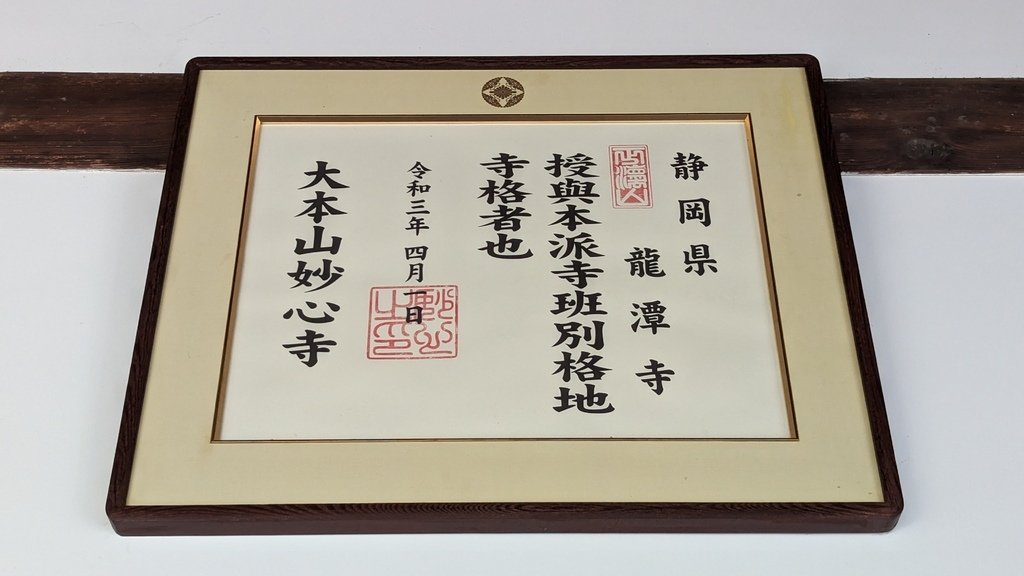 静岡県
龍潭寺
授與本派寺班別格地
寺格者也
令和三年四月一日
大本山妙心寺